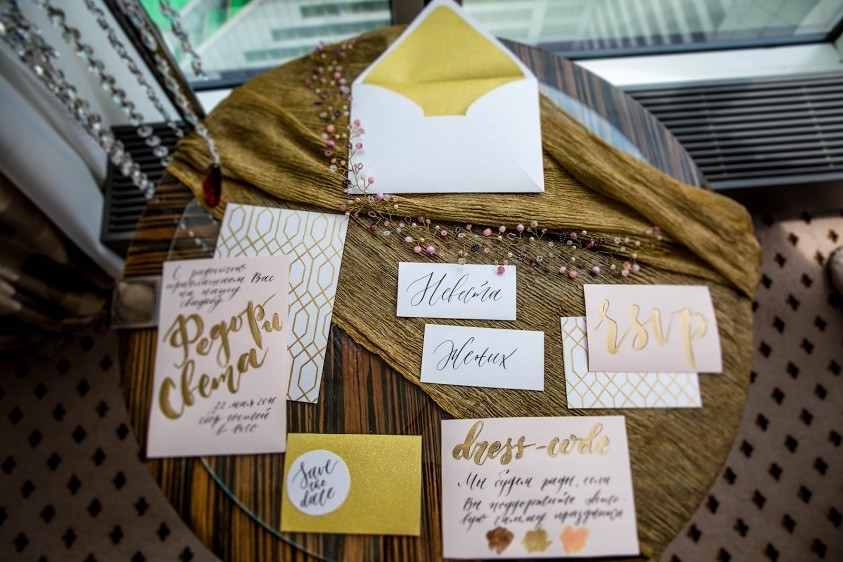 С радостью
приглашаем Вас
на нашу
свадьбу
Федор и
Света
22 мая
сбор гостей
в
Невеста
Жених
rsvp
save
the
date
dress-code
Мы будем рады, если
Вы поддержите цвето-
вую гамму праздника